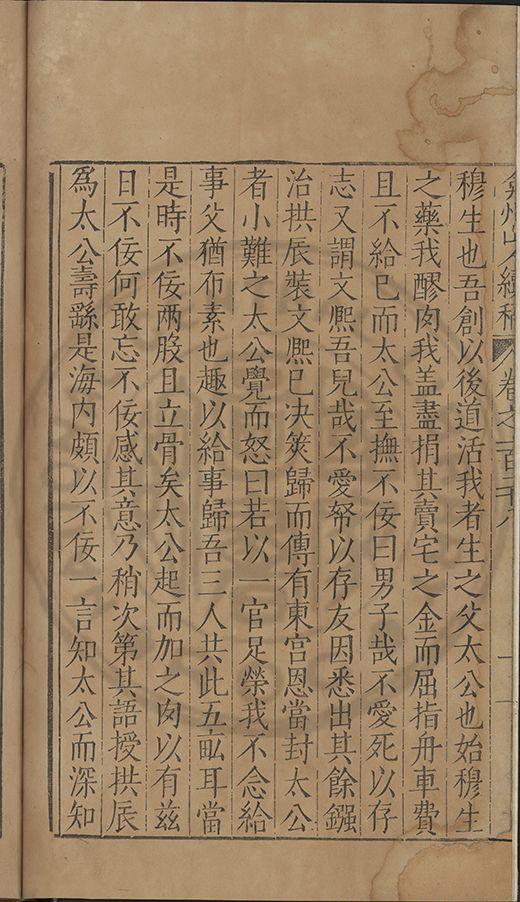 弇州山人續稿 卷之一百二十八
穆生也吾創以後道活我者生之父太公也始穆生
之藥我醪肉我盖盡捐其賣宅之金而屈指舟車費
且不給已而太公至撫不佞曰男子哉不愛死以存
志又謂文熈吾兒哉不愛帑以存友因悉出其餘鏹
治拱辰裝文熈已决筴歸而傳有東宫恩當封太公
者小難之太公覺而怒曰若以一官足榮我不念給
事父猶布素也趣以給事歸吾三人共此五畝耳當
是時不佞兩股且立骨矣太公起而加之肉以有兹
日不佞何敢忘不佞感其意乃稍次第其語授拱辰
為太公壽繇是海内頗以不佞一言知太公而深知